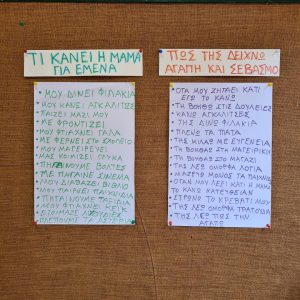 ΤΙ ΚΑΝΕΙ Η ΜΑΜΑ
ΓΙΑ ΕΜΕΝΑ
ΜΟΥ ΔΙΝΕΙ ΦΙΛΑΚΙΑ
ΜΟΥ ΚΑΝΕΙ ΑΓΚΑΛΙΤΣΕΣ
ΠΑΙΖΕΙ ΜΑΖΙ ΜΟΥ
ΜΕ ΦΡΟΝΤΙΖΕΙ
ΜΟΥ ΦΤΙΑΧΝΕΙ ΓΑΛΑ
ΜΕ ΦΕΡΝΕΙ ΣΤΟ ΣΧΟΛΕΙΟ
ΜΟΥ ΜΑΓΕΙΡΕΥΕΙ
ΜΑΣ ΚΟΙΜΙΖΕΙ ΓΛΥΚΑ
ΠΗΓΑΙΝΟΥΜΕ ΒΟΛΤΕΣ
ΜΕ ΠΗΓΑΙΝΕ ΣΙΝΕΜΑ
ΜΟΥ ΔΙΑΒΑΖΕΙ ΒΙΒΛΙΟ
ΜΟΥ ΠΑΙΡΝΕΙ ΠΑΙΧΝΙΔΙΑ
ΠΗΓΑΙΝΟΥΜΕ ΤΑΞΙΔΙΑ
ΜΟΥ ΦΤΙΑΧΝΕΙ ΚΕΙΚ
ΕΤΟΙΜΑΖΕΙ
ΒΛΕΠΟΥΜΕ ΤΑ ΑΣΤΕΡΙΑ
ΠΩΣ ΤΗΣ ΔΕΙΧΝΩ
ΑΓΑΠΗ ΚΑΙ ΣΕΒΑΣΜΟ
ΟΤΑ ΜΟΥ ΖΗΤΑΕΙ ΚΑΤΙ
ΕΓΩ ΤΟ ΚΑΝΩ
ΤΗ ΒΟΗΘΩ ΣΤΙΣ ΔΟΥΛΕΙΕΣ
ΚΑΝΩ ΑΓΚΑΛΙΤΣΕΣ
ΤΗΣ ΔΙΝΩ ΦΙΛΑΚΙΑ
ΠΛΕΝΩ ΤΑ ΠΙΑΤΑ
ΤΗΣ ΜΙΛΑΩ ΜΕ ΕΥΓΕΝΕΙΑ
ΤΗ ΒΟΗΘΩ ΣΤΗ ΜΑΓΕΙΡΙΚΗ
ΤΗ ΒΟΗΘΩ ΣΤΟ ΜΑΓΑΖΙ
ΤΗΣ ΛΕΩ ΟΜΟΡΦΑ ΛΟΓΙΑ
ΜΑΖΕΥΩ ΜΟΝΟΣ ΤΑ ΠΑΙΧΝΙΔΙΑ
ΟΤΑΝ ΜΟΥ ΛΕΕΙ ΚΑΤΙ Η ΜΑΜΑ
ΤΟ ΚΑΝΩ ΚΑΤΕΥΘΕΙΑΝ
ΣΤΡΩΝΩ ΤΟ ΚΡΕΒΑΤΙ ΜΟΥ
ΤΗΣ ΛΕΩ ΟΜΟΡΦΑ ΤΡΑΓΟΥΔΙΑ
ΤΗΣ ΛΕΩ ΠΩΣ ΤΗΝ
ΑΓΑΠΩ